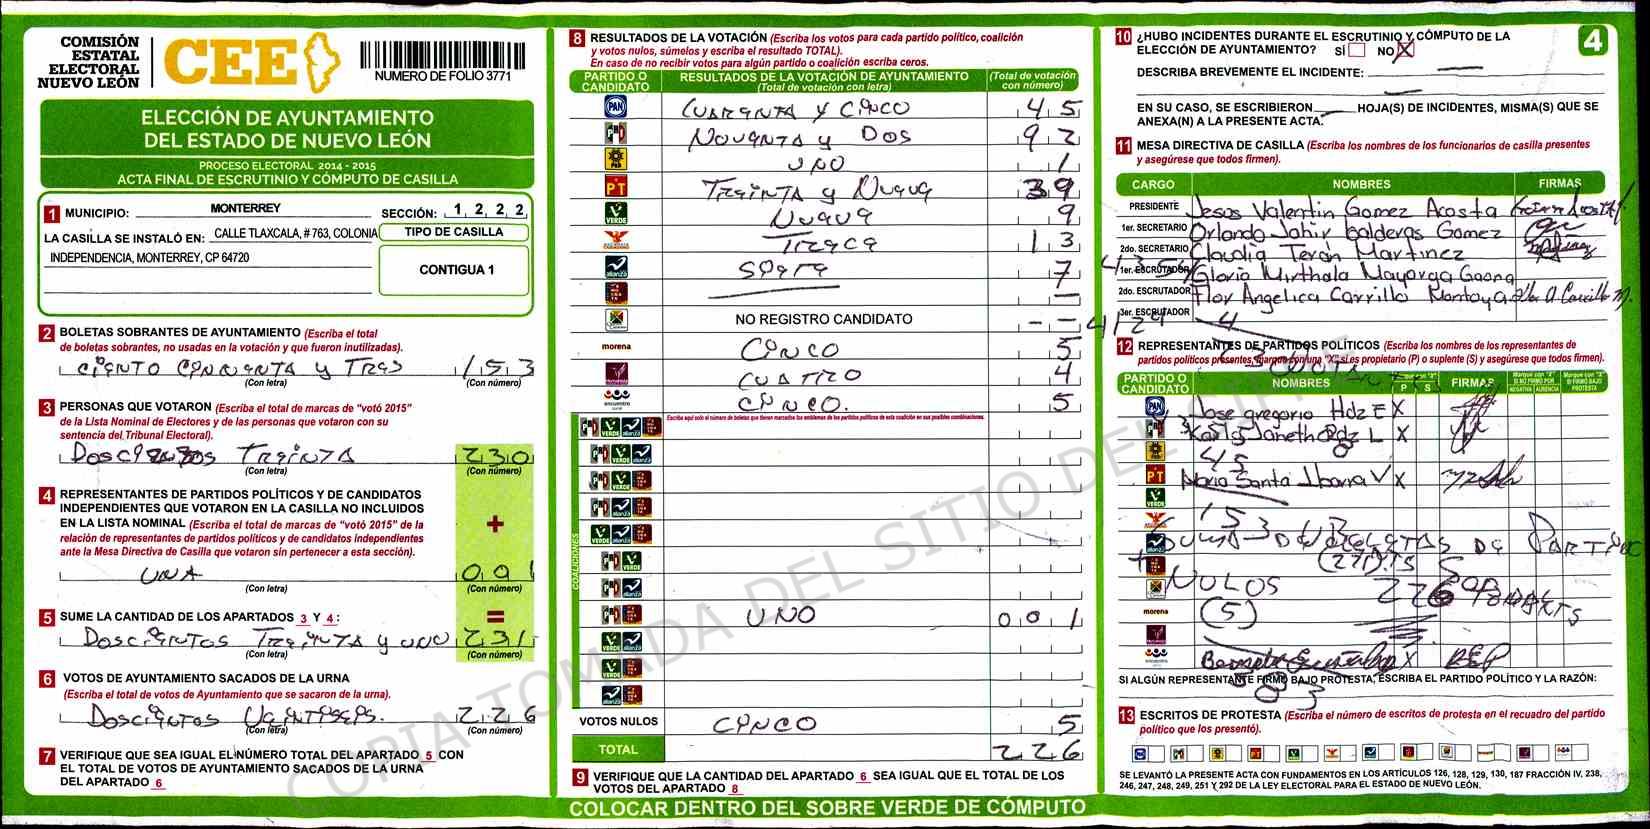 COMISIÓN
ESTATAL
ELECTORAL
NUEVO LEÓN
CEE
NUMERO DE FOLIO 3771
ELECCIÓN DE AYUNTAMIENTO
DEL ESTADO DE NUEVO LEÓN
PROCESO ELECTORAL 2014 - 2015
ACTA FINAL DE ESCRUTINIO Y CÓMPUTO DE CASILLA
1 MUNICIPIO: MONTERREY SECCIÓN: 1 2 2 2
LA CASILLA SE INSTALÓ EN: CALLE TLAXCALA, # 763, COLONIA
INDEPENDENCIA, MONTERREY, CP 64720
TIPO DE CASILLA
CONTIGUA 1
2 BOLETAS SOBRANTES DE AYUNTAMIENTO (Escriba el total
de boletas sobrantes, no usadas en la votación y que fueron inutilizadas).
CIENTO CINCUENTA y TRES 153
(Con letra) (Con número)
3 PERSONAS QUE VOTARON (Escriba el total de marcas de “votó 2015”
de la Lista Nominal de Electores y de las personas que votaron con su
sentencia del Tribunal Electoral).
DOSCIENTOS TREINTA 230
(Con letra) (Con número)
4 REPRESENTANTES DE PARTIDOS POLÍTICOS Y DE CANDIDATOS
INDEPENDIENTES QUE VOTARON EN LA CASILLA NO INCLUIDOS
EN LA LISTA NOMINAL (Escriba el total de marcas de “votó 2015” de la
relación de representantes de partidos políticos y de candidatos independientes
ante la Mesa Directiva de Casilla que votaron sin pertenecer a esta sección).
+
UNA 001
(Con letra) (Con número)
=
5 SUME LA CANTIDAD DE LOS APARTADOS 3 Y 4:
DOSCIENTOS TREINTA y UNO 231
(Con letra) (Con número)
6 VOTOS DE AYUNTAMIENTO SACADOS DE LA URNA
(Escriba el total de votos de Ayuntamiento que se sacaron de la urna).
DOSCIENTOS VEINTISEIS. 226
(Con letra) (Con número)
7 VERIFIQUE QUE SEA IGUAL EL NÚMERO TOTAL DEL APARTADO 5 CON
EL TOTAL DE VOTOS DE AYUNTAMIENTO SACADOS DE LA URNA
DEL APARTADO 6
8 RESULTADOS DE LA VOTACIÓN (Escriba los votos para cada partido político, coalición
y votos nulos, súmelos y escriba el resultado TOTAL).
En caso de no recibir votos para algún partido o coalición escriba ceros.
PARTIDO O CANDIDATO RESULTADOS DE LA VOTACIÓN DE AYUNTAMIENTO (Total de votación con letra) (Total de votación con número)
PAN CUARENTA Y CINCO 45
PRI NOVENTA y DOS 92
PRD UNO 1
PT TREINTA y NUEVE 39
VERDE NUEVE 9
TRECE 13
alianza SIETE 7
—
NO REGISTRO CANDIDATO - -
morena CINCO 5
CUATRO 4
encuentro social CINCO. 5
Escriba aquí solo el número de boletas que tienen marcados los emblemas de los partidos políticos de esta coalición en sus posibles combinaciones.
COALICIONES
UNO 001
VOTOS NULOS CINCO 5
TOTAL 226
9 VERIFIQUE QUE LA CANTIDAD DEL APARTADO 6 SEA IGUAL QUE EL TOTAL DE LOS
VOTOS DEL APARTADO 8
COLOCAR DENTRO DEL SOBRE VERDE DE CÓMPUTO
10 ¿HUBO INCIDENTES DURANTE EL ESCRUTINIO Y CÓMPUTO DE LA
ELECCIÓN DE AYUNTAMIENTO? SÍ NO X
4
DESCRIBA BREVEMENTE EL INCIDENTE:
EN SU CASO, SE ESCRIBIERON HOJA(S) DE INCIDENTES, MISMA(S) QUE SE
ANEXA(N) A LA PRESENTE ACTA.
11 MESA DIRECTIVA DE CASILLA (Escriba los nombres de los funcionarios de casilla presentes
y asegúrese que todos firmen).
CARGO NOMBRES FIRMAS
PRESIDENTE Jesus Valentin Gomez Acosta
1er. SECRETARIO Orlando Jahir Balderas Gomez
2do. SECRETARIO Claudia Terán Martinez
1er. ESCRUTADOR Gloria Mirthala Mayorga Gaona
2do. ESCRUTADOR Flor Angelica Carrillo Montoya Flor A Carrillo M.
3er. ESCRUTADOR
12 REPRESENTANTES DE PARTIDOS POLÍTICOS (Escriba los nombres de los representantes de
partidos políticos presentes, marque con una "X" si es propietario (P) o suplente (S) y asegúrese que todos firmen).
PARTIDO O CANDIDATO NOMBRES P S FIRMAS
PAN Jose gregorio Hdz E X
PRI Karla Janeth Rdz L X
PRD 45
PT Maria Santa Ibarra V X
VERDE
15
SUMA DE BOLETAS DE PARTIDO
NULOS 226
morena (5)
X
SI ALGÚN REPRESENTANTE FIRMÓ BAJO PROTESTA, ESCRIBA EL PARTIDO POLÍTICO Y LA RAZÓN:
13 ESCRITOS DE PROTESTA (Escriba el número de escritos de protesta en el recuadro del partido
político que los presentó).
SE LEVANTÓ LA PRESENTE ACTA CON FUNDAMENTOS EN LOS ARTÍCULOS 126, 128, 129, 130, 187 FRACCIÓN IV, 238,
246, 247, 248, 249, 251 Y 292 DE LA LEY ELECTORAL PARA EL ESTADO DE NUEVO LEÓN.
COPIA TOMADA DEL SITIO DEL SIPRE